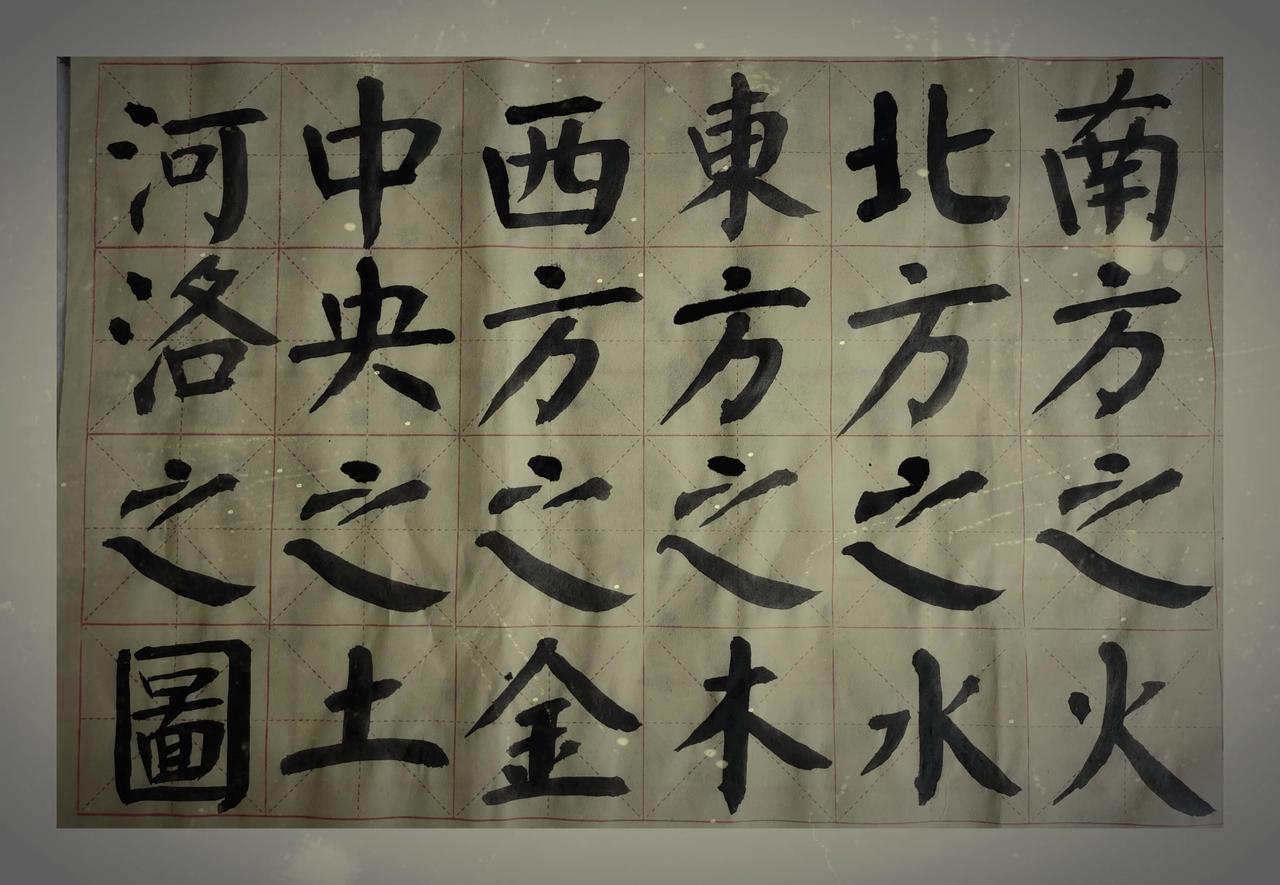 南方之火
北方之水
東方之木
西方之金
中央之土
河洛之圖